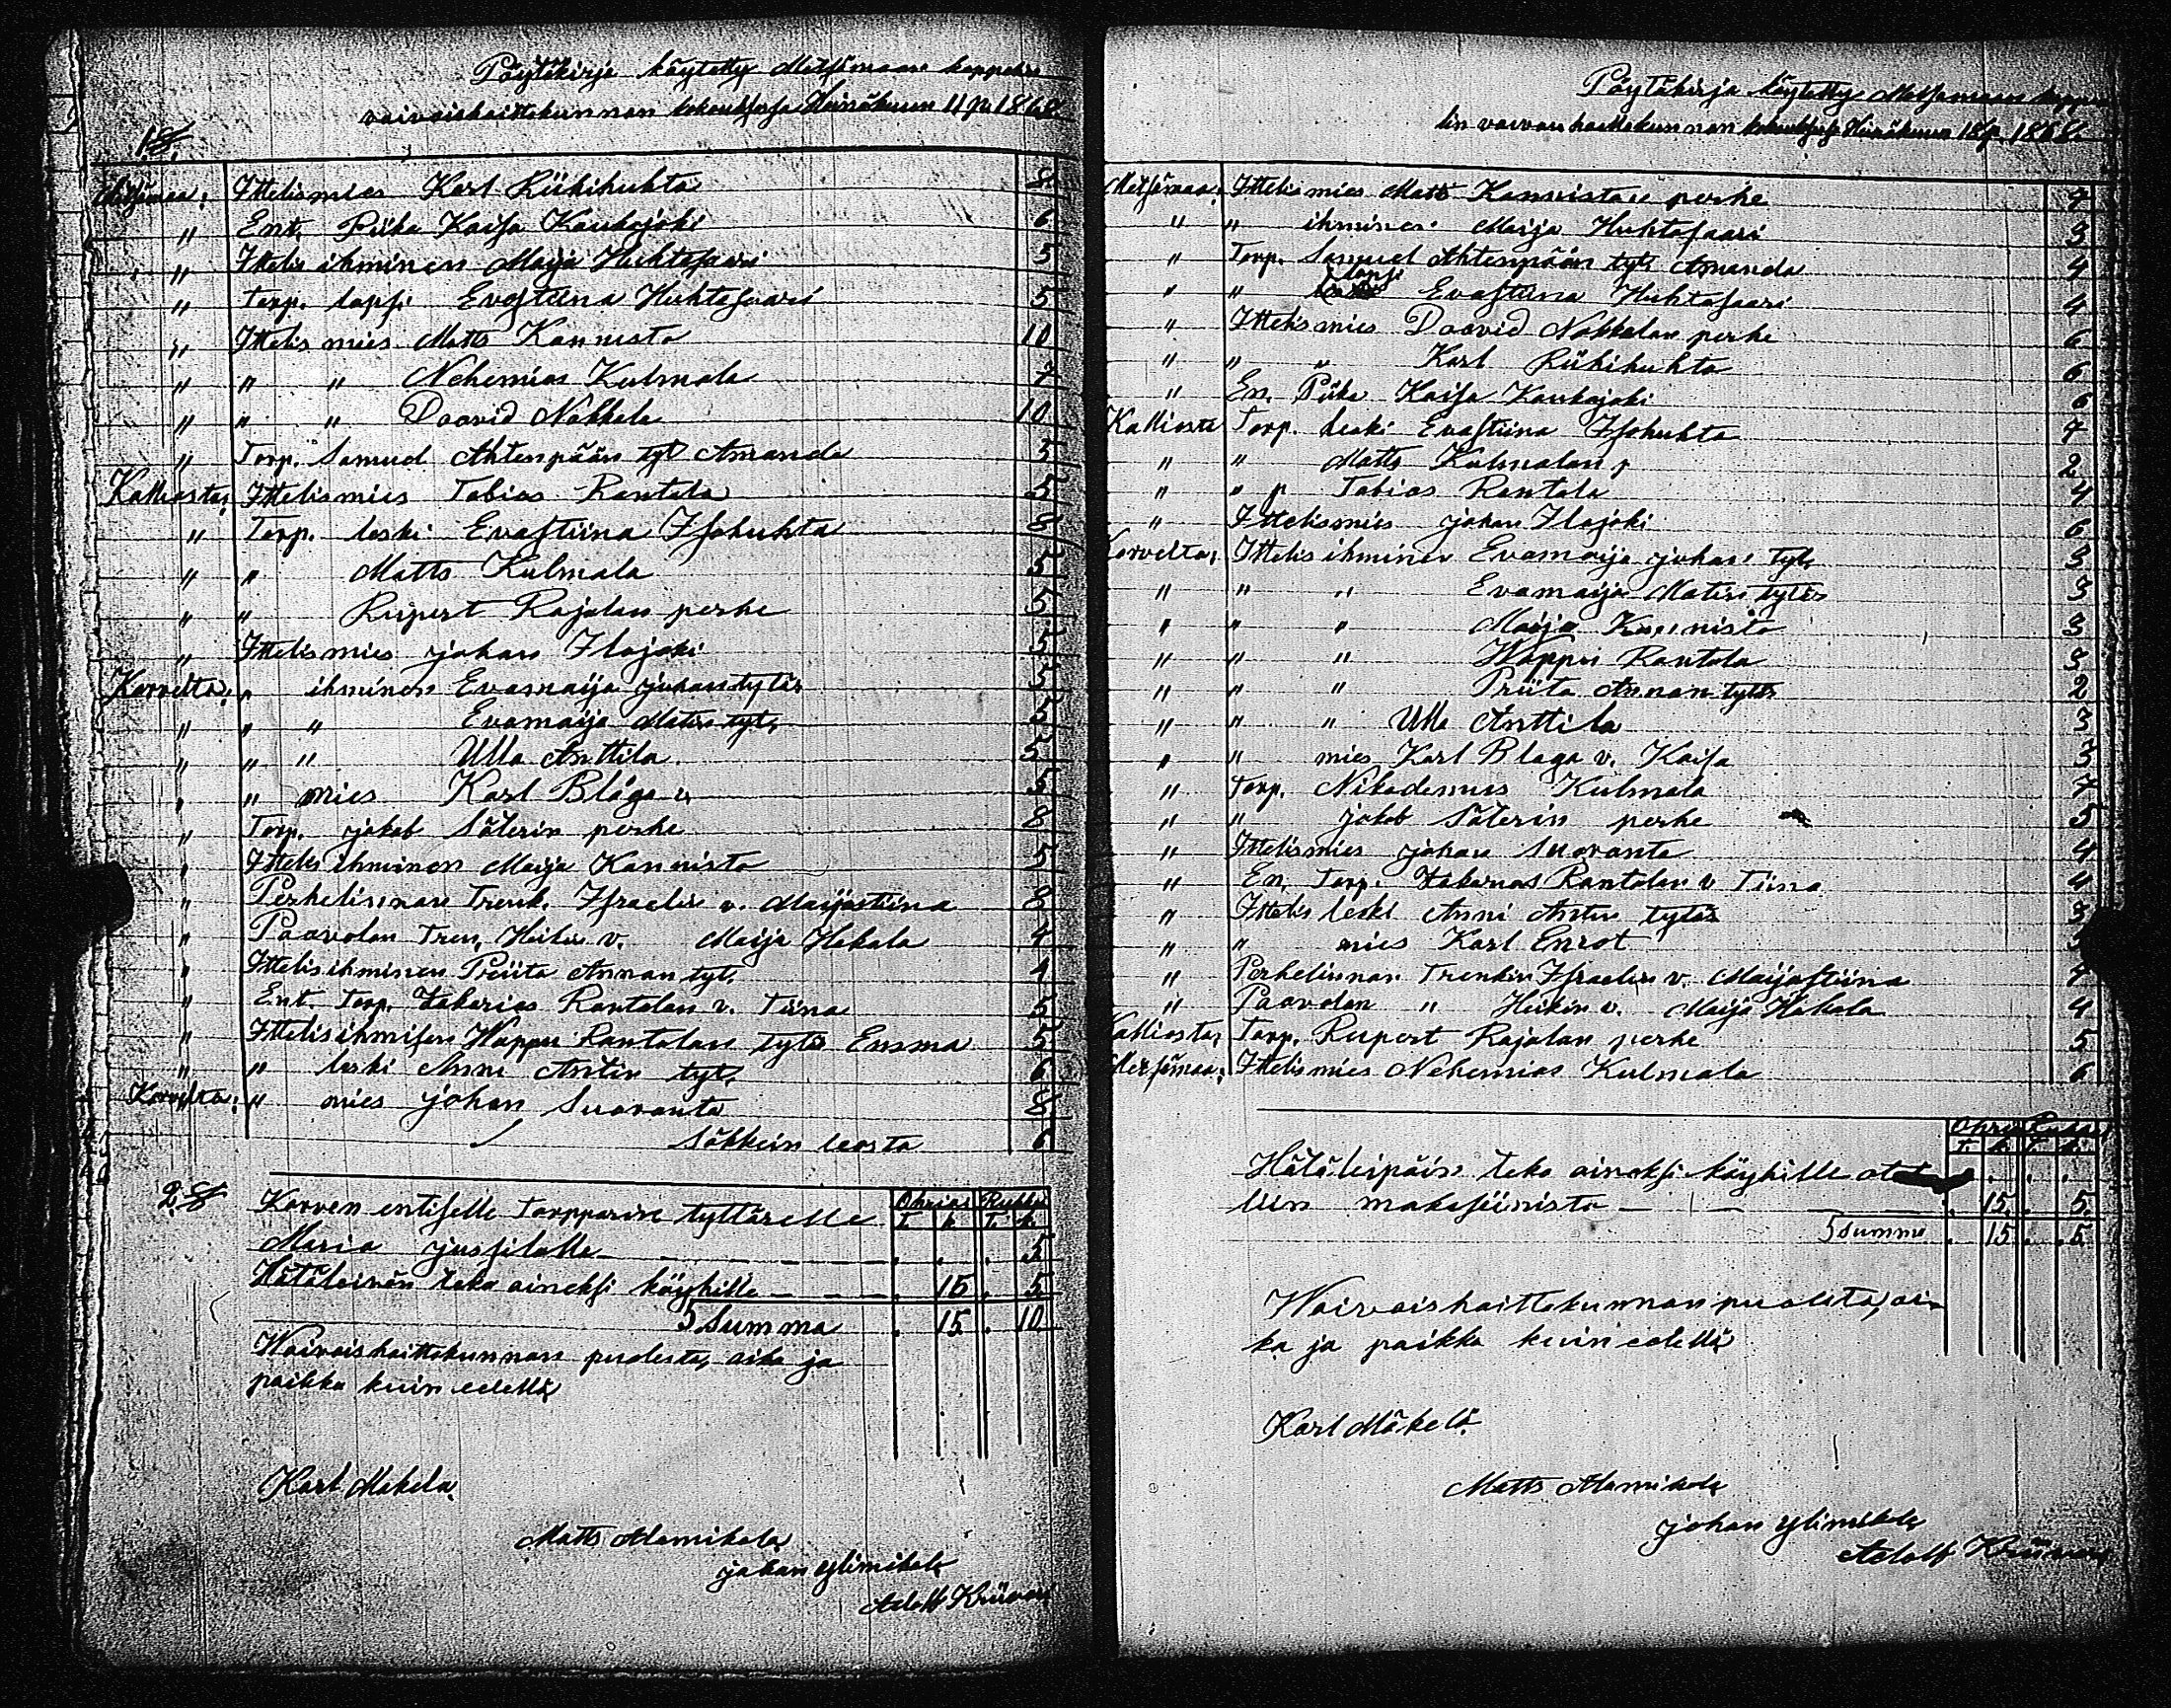 Pöytäkirja käytetty Metsämaan kappelin
vaivaishoittokunnan kokouksesa Heinäkuun 11 p. 1868.
1 §.
Metsämaa: Ittelismies Karl Riihihuhta 8
" Ent. Piika Kaisa Koukojoki 6
" Ittelis ihminen Maija Huhtasaari 5
" Torp. lapsi Evastiina Huhtasaari 5
" Ittelis mies Matts Kannisto 10
" " " Nehemias Kulmala 7
" " " Daavid Nokkala 10
" Torp. Samuel Ahtenpään tyt. Amanda 5
Kalliosta: Ittelismies Tobias Rantala 5
" Torp. leski Evastiina Isohuhta 8
" " Matts Kulmala 5
" " Rupert Rajalan perhe 5
" Ittelismies johan Ilojoki 5
Korvelta: " ihminen Evamaija juhan tytär 5
" " " Evamaija Matin tyt. 5
" " " Ulla Anttila 5
" " mies Karl Blåga v. 5
" Torp. jakob Säterin perhe 8
" Ittelis ihminen Maija Kannisto 5
" Perhelinnan Trenk. Israelin v. Maijastiina 8
" Paavolan Tren. Heikin v. Maija Hakala 4
" Ittelisihminen Priita Annan tyt. 4
" Ent. Torp. Zakarias Rantalan v. Tiina 5
" Ittelisihmisen Wappu Rantalan tytär Emma 5
" " leski Anni Antin tyt. 6
Korvelta: " mies johan Suovanta 8
Säkkein leasta 6
2 §
Korven entiselle Torpparin tyttärelle
Ohria Rukki
T. k. T. k.
Maria jussilalle — — — . . . 5
Hätäleivän teko aineksi köyhille — — — . 15 . 5
Summa . 15 . 10
Waivaishoittokunnan puolesta, aika ja
paikka kuin edellä
Karl Mäkelä
Matts Alamikola
johan ylimikola
Adolf Kriivari
Pöytäkirja käytetty Metsämaan kappe
lin vaivaishoittokunnan kokouksesa Heinäkuun 18 p. 1868.
Metsämaa: Ittelismies Matts Kanniston perhe 7
" " ihminen Maija Huhtasaari 3
" Torp. Samuel Ahtenpään tyt. Amanda 4
" " lapsi Evastiina Huhtasaari 4
" Ittelismies Daavid Nokkalan perhe 6
" " " Karl Riihihuhta 6
" En. Piika Kaisa Koukojoki 6
Kalliosta Torp. leski Evastiina Isohuhta 7
" " Matts Kulmalan p 2
" " p Tobias Rantala 4
" Ittelismies johan Ilojoki 6
Korvelta: Ittelis ihminen Evamaija johan tyt. 3
" " " Evamaija Matin tytär 3
" " " Maija Kannisto 3
" " " Wappu Rantala 3
" " " Priita Annan tytär 2
" " " Ulla Anttila 3
" " mies Karl Blaga v. Kaisa 3
" Torp. Nikodemus Kulmala 7
" " jakob Säterin perhe 5
" Ittelismies johan Suovanta 4
" En. Torp. Zakarias Rantalan v Tiina 4
" Ittelis leski Anni Antin tytär 3
" " mies Karl Enrot 3
" Perhelinnan Trenkin Israelin v. Maijastiina 7
" Paavolan " Heikin v. Maija Hakala 4
Kalliosta, Torp. Rupert Rajalan perhe 5
Metsämaa: Ittelismies Nehemias Kulmala 6
Ohria Rukki
T. k. T. k.
Hätäleipäin teko aineksi köyhille
tiin makasiinista — — — . 15 . 5.
Summa . 15 . . 5.
Waivaishoittokunnan puolesta, ai-
ka ja paikka kuin edellä
Karl Mäkelä.
Matts Alamikola
johan ylimikola
Adolf Kriivari